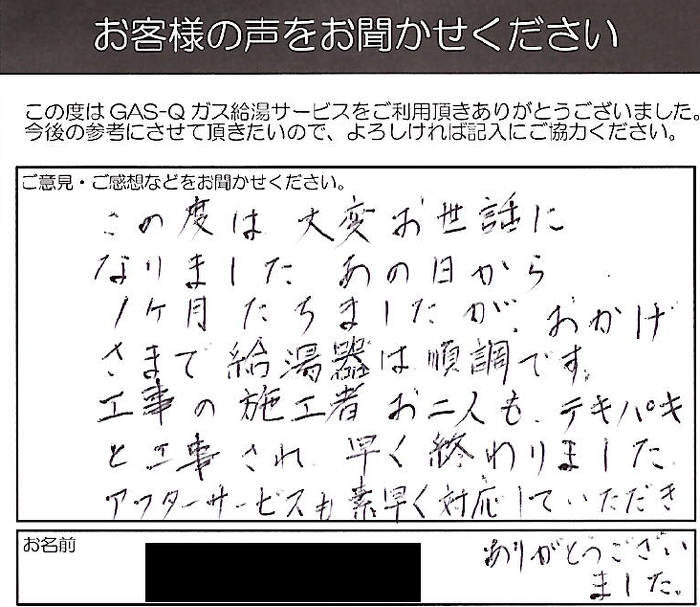 お客様の声をお聞かせください
この度はGAS-Qガス給湯サービスをご利用頂きありがとうございました。
今後の参考にさせて頂きたいので、よろしければ記入にご協力ください。
ご意見・ご感想などをお聞かせください。
この度は 大変お世話に
なりました あの日から
1ケ月 たちましたが、おかげ
さまで給湯器は順調です。
工事の施工者 お二人も、テキパキ
と工事され 早く終わりました
アフターサービスも素早く対応していただき
お名前
ありがとうござい
ました。